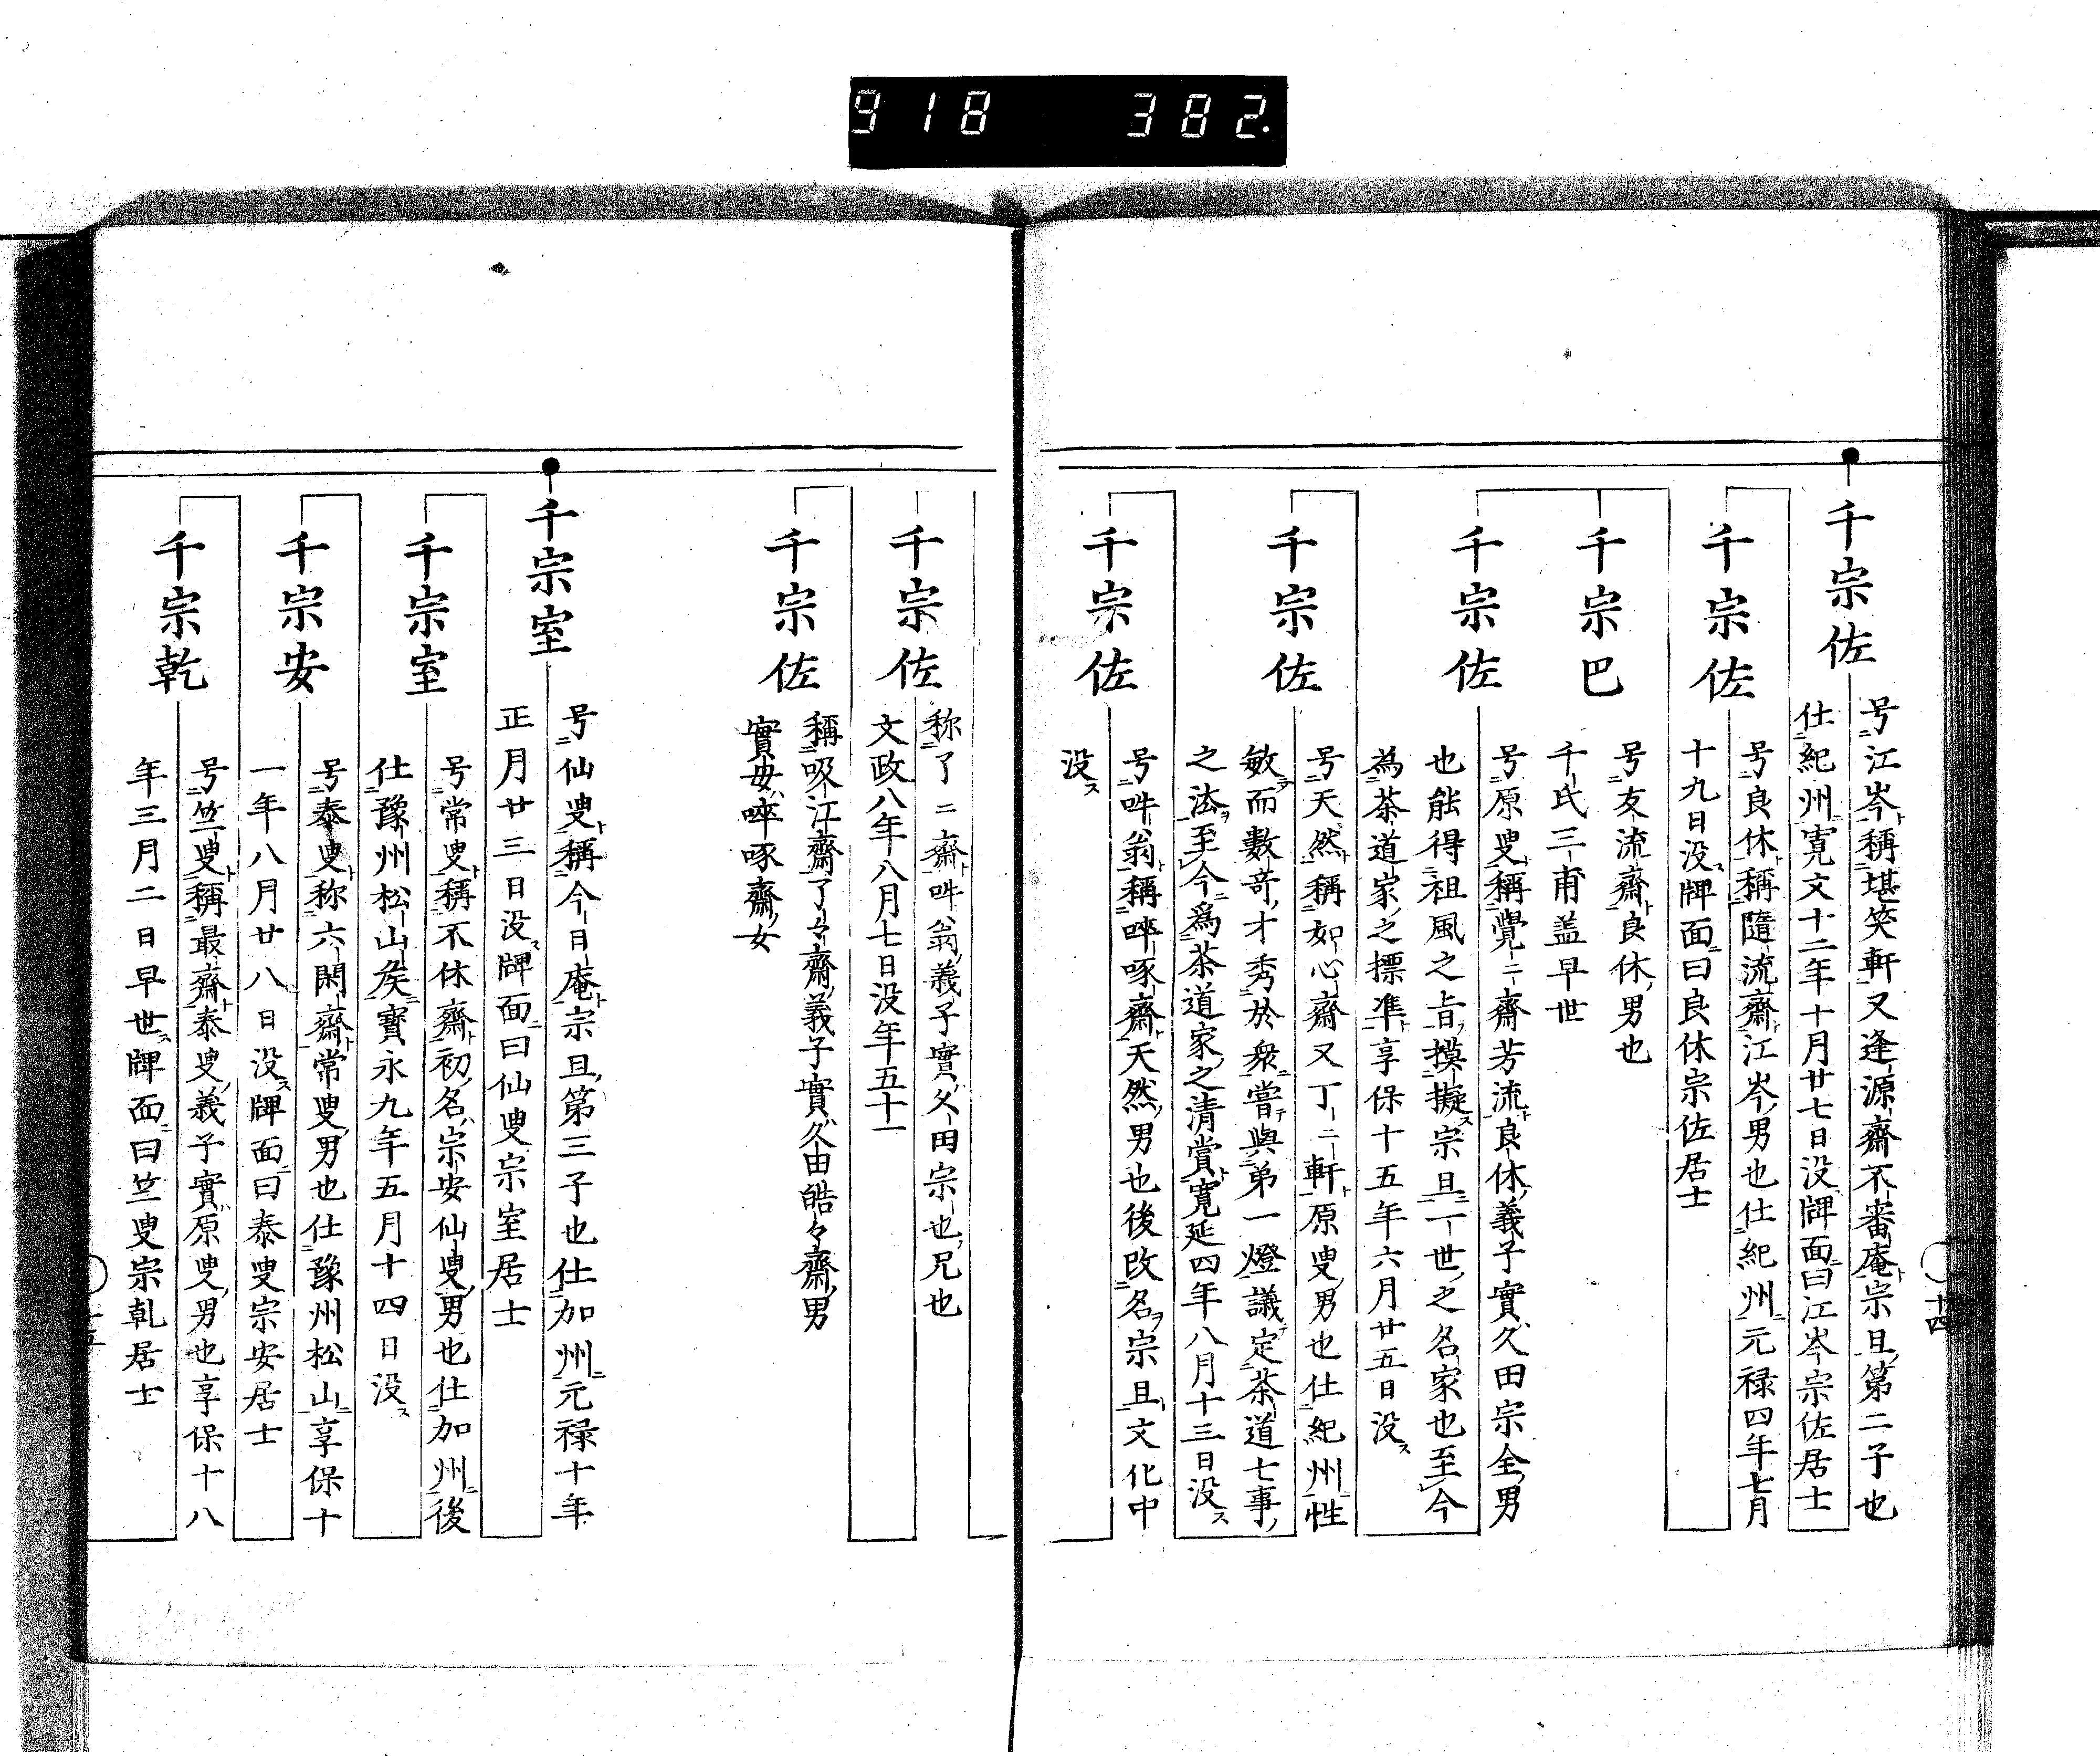 918 382.
千宗佐
号江岑稱堪笑軒又逢源齋不審庵宗旦第二子也
仕紀州寛文十二年十月廿七日没牌面曰江岑宗佐居士
千宗佐
号良休稱隨流齋江岑男也仕紀州元禄四年七月
十九日没牌面曰良休宗佐居士
千宗巴
号友流齋良休男也
千氏三甫盖早世
千宗佐
号原叟稱覺二齋芳流良休義子實久田宗全男
也能得祖風之旨摸擬宗旦一世之名家也至今
為茶道家之摽準享保十五年六月廿五日没
千宗佐
号天然稱如心齋又丁二軒原叟男也仕紀州性
敏而數竒才秀於衆嘗與弟一燈議定茶道七事
之法至今爲茶道家之清賞寛延四年八月十三日没
千宗佐
号吽翁稱啐啄齋天然男也後改名宗旦文化中
没
十四
千宗佐
称了二齋吽翁義子實久田宗也兄也
文政八年八月七日没年五十一
千宗佐
稱吸江齋了々齋義子實久田皓々齋男
實母啐啄齋女
千宗室
号仙叟稱今日庵宗旦第三子也仕加州元禄十年
正月廿三日没牌面曰仙叟宗室居士
千宗室
号常叟稱不休齋初名宗安仙叟男也仕加州後
仕豫州松山矦寳永九年五月十四日没
千宗安
号泰叟称六閑齋常叟男也仕豫州松山享保十
一年八月廿八日没牌面曰泰叟宗安居士
千宗乾
号竺叟稱最齋泰叟義子實原叟男也享保十八
年三月二日早世牌面曰竺叟宗乹居士
十五